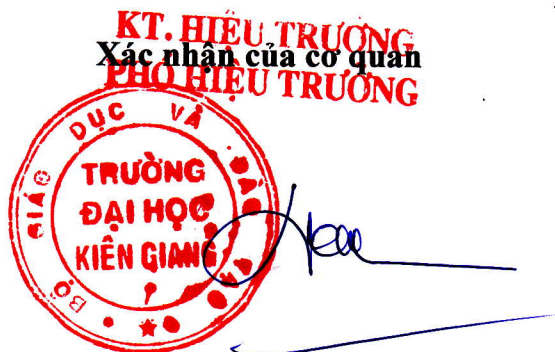 KT. HIỆU TRƯỞNG
Xác nhận của cơ quan
PHÓ HIỆU TRƯỞNG
BỘ GIÁO DỤC VÀ ĐÀO TẠO
TRƯỜNG
ĐẠI HỌC
KIÊN GIANG